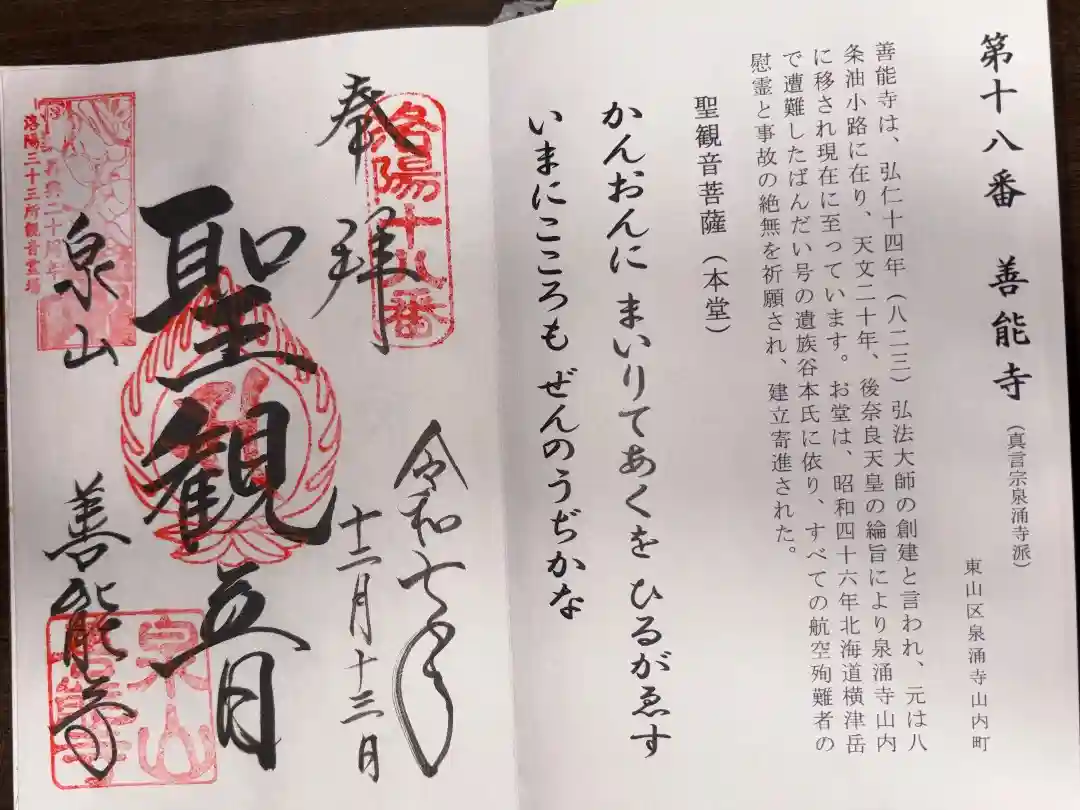 第十八番 善能寺（真言宗泉涌寺派）
東山区泉涌寺山内町
善能寺は、弘仁十四年（八二三）弘法大師の創建と言われ、元は八
条油小路に在り、天文二十年、後奈良天皇の綸旨により泉涌寺山内
に移され現在に至っています。お堂は、昭和四十六年北海道横津岳
で遭難したばんだい号の遺族谷本氏に依り、すべての航空殉難者の
慰霊と事故の絶無を祈願され、建立寄進された。
聖観音菩薩（本堂）
かんおんに まいりてあくを ひるがゑす
いまにこころも ぜんのうぢかな
洛陽十八番
奉拝
令和七年
十二月十三日
聖観音
泉山
善能寺
再興二十周年
洛陽三十三所観音霊場
泉山
善能寺